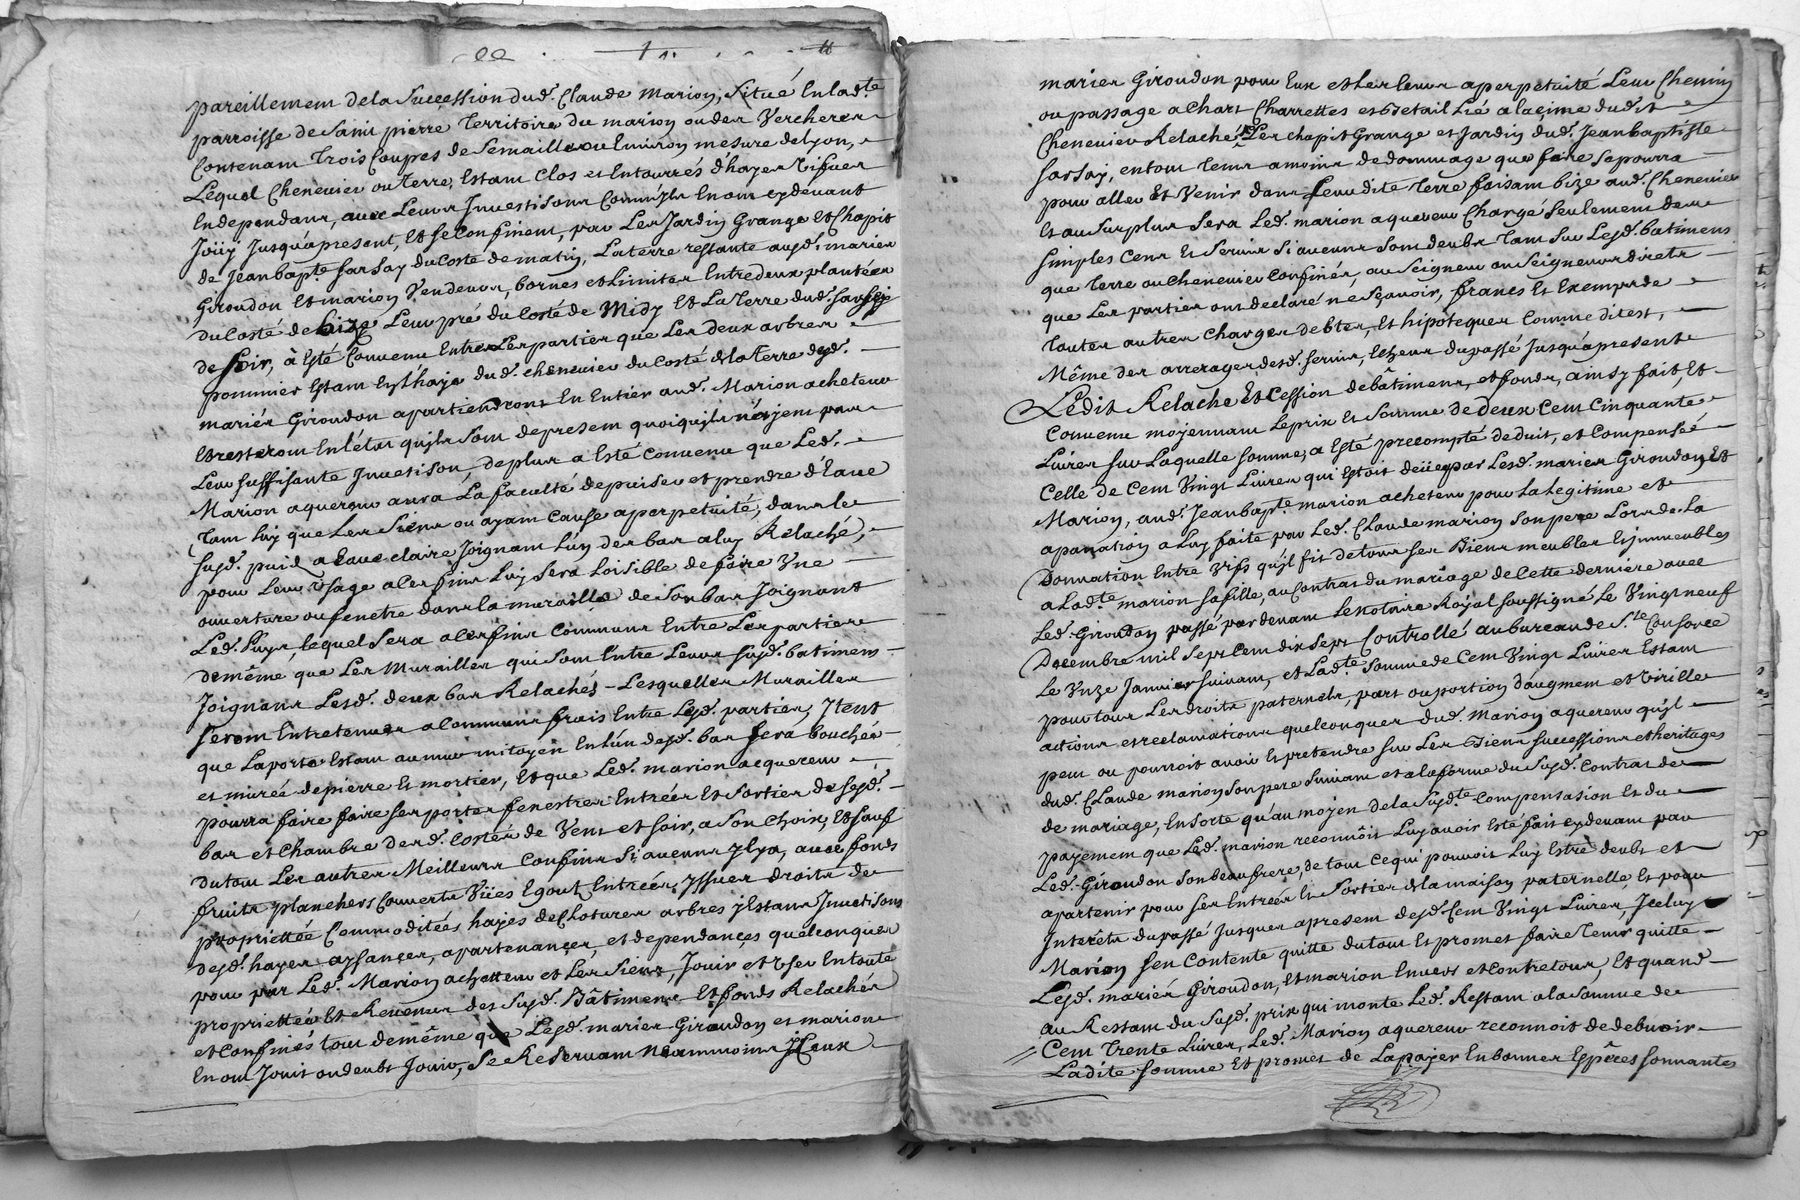 pareillement dela Succession dud. Claude Marion, Situé En lad.te
parroisse de Saint pierre Territoire du marion ou des Vercheres
Contenant Trois Coupes de Semailles ou Environ mesure de Lyon,
Lequel Chenevier ou Terre, Estant Clos et Entourrés d'hayes Vifves
En dependans, avec Leurs Investisons Comm'ils En ont cy devant
Joüy Jusqu'apresent, Et se Confinent, par Les Jardin Grange Et Chapit
de Jean bapt.e sarsay du Costé de matin, La terre restante auxd. mariés
Giroudon Et marion Vendeurs, bornes et Limites Entre deux plantées
du Costé de bize Leur pré du Costé de Midy Et La Terre dud. sarsay
de soir, à Esté Convenu Entre Les parties que Les deux arbres
pommiers Estant En l'haye dud. chenevier du Costé de la Terre desd.
mariés Giroudon apartiendront En Entier aud. Marion acheteur
Et resteront En l'état qu'ils sont de present quoiqu'ils n'ayent pour
Leur suffisante Investison, de plus a Esté Convenu que Led.
Marion aquereur aura La faculté de puiser et prendre d'Eaue
Tant Luy que Les Siens ou ayant Cause a perpetuité, dans le
susd. puid a Eaue claire Joignant L'un des bas a luy Relaché,
pour Leur Usage a Ces fins Luy sera Loisible de faire Une
ouverture ou fenetre dans la muraille de son bas Joignant
Led. Puys, Lequel sera a Ces fins Commun Entre Les parties
de même que Les Murailles qui sont Entre Leurs susd. batimens
Joignans Lesd. deux bas Relachés - Lesquelles Murailles
seront Entretenues a Communs frais Entre Lesd. parties, Item
que La porte Estant au mur mitoyen En L'un desd. bas sera bouchée
et murée de pierre Et mortier, Et que Led. marion acquereur
pourra faire faire ses portes fenestres Entrées Et Sorties desd.
bas et Chambre de sd. Costés de Vent et soir, a son Choix, Et sauf
du tout Les autres Meilleurs Confins Si aucuns Il y a, avec fonds
fruits planchers Couverts Vües Egout Entrées, Issues droits de
proprietté Commoditées hayes de Clotures arbres y Estans Investisons
desd. hayes aysances, apartenances, et dependances quelconques
pour par Led. Marion achetteur et Les Siens, Jouir et User En toute
proprietté Et Revenus des susd. Bâtimens Et fonds Relachés
et Confinés tout de même que Lesd. mariés Giroudon et marion
En ont Jouit ou deubt Jouir, Se Reservant Neammoins Iceux
mariés Giroudon pour Eux et Les leurs a perpetuité Leur Chemin
ou passage a Chars Charrettes et Betail Lié a la cime dudit
Chenevier Relaché, Les chapit Grange et Jardin dud. Jean baptiste
sarsay, en tout Tems a moins de dommage que faire se pourra
pour aller Et Venir dans Leur dite Terre faisant bize aud. Chenevier
Et au surplus sera Led. marion aquereur Chargé seulement de
simples Cens Et Servis Si aucuns sont deubs tant sur Lesd. batimens
que Terre ou Chenevier Confinés, au Seigneur ou Seigneurs directs
que Les parties ont declaré ne sçavoir, francs Et Exempts de
toutes autres Charges debtes, Et hipoteques Comme dit est,
Même des arrerages desd. servis, Echeus du passé Jusqu'apresent
Ledit Relache Et Cession de bâtimens, et fonds, ainsy fait, Et
Convenu moyennant Le prix Et Somme de deux Cent Cinquante
Livres sur Laquelle somme a Esté precompté deduit, et Compensée
Celle de Cent Vingt Livres qui Estoit deüe par Lesd. mariés Giroudon Et
Marion, aud. Jean bapt.e marion acheteur pour La Legitime et
apanation a Luy faite par Led. Claude marion son pere Lors de La
Donnation Entre Vifs qu'il fit de tous ses Biens meubles Et immeubles
a Lad.te marion sa fille, au Contrat du mariage de Cette derniere avec
Led. Giroudon passé par devant Le notaire Royal soussigné Le Vingt neuf
Decembre mil Sept Cent dix Sept Controllé au bureau de S.te Consorce
Le Unze Janvier suivant, et Lad.te Somme de Cent Vingt Livres Estant
pour tous Les droits paternels, part ou portion d'augment et Virille
actions et reclamations quelconques dud. Marion aquereur qu'il
peut ou pourroit avoir Et pretendre sur Les Biens successions et heritages
dud. Claude marion son pere suivant et a la forme du susd. Contrat de
de mariage, En sorte qu'au moyen de la susd.te Compensation Et du
payement que Led. marion reconnoit Luy avoir Esté fait cy devant par
Led. Giroudon son beau frere, de tout Ce qui pouvoit Luy Estre deubt et
apartenir pour ses Entrées Et Sorties de la maison paternelle Et pour
Interêts du passé Jusques apresent desd. Cent Vingt Livres, Iceluy
Marion s'en Contente quitte du tout Et promet faire Tenir quitte
Lesd. mariés Giroudon, Et marion Envers et Contre tous, Et quand
au Restant du susd. prix qui monte Led. Restant a la Somme de
Cent Trente Livres, Led. Marion aquereur reconnoit de debvoir
Ladite somme Et promet de La payer En bonnes Espèces sonnantes